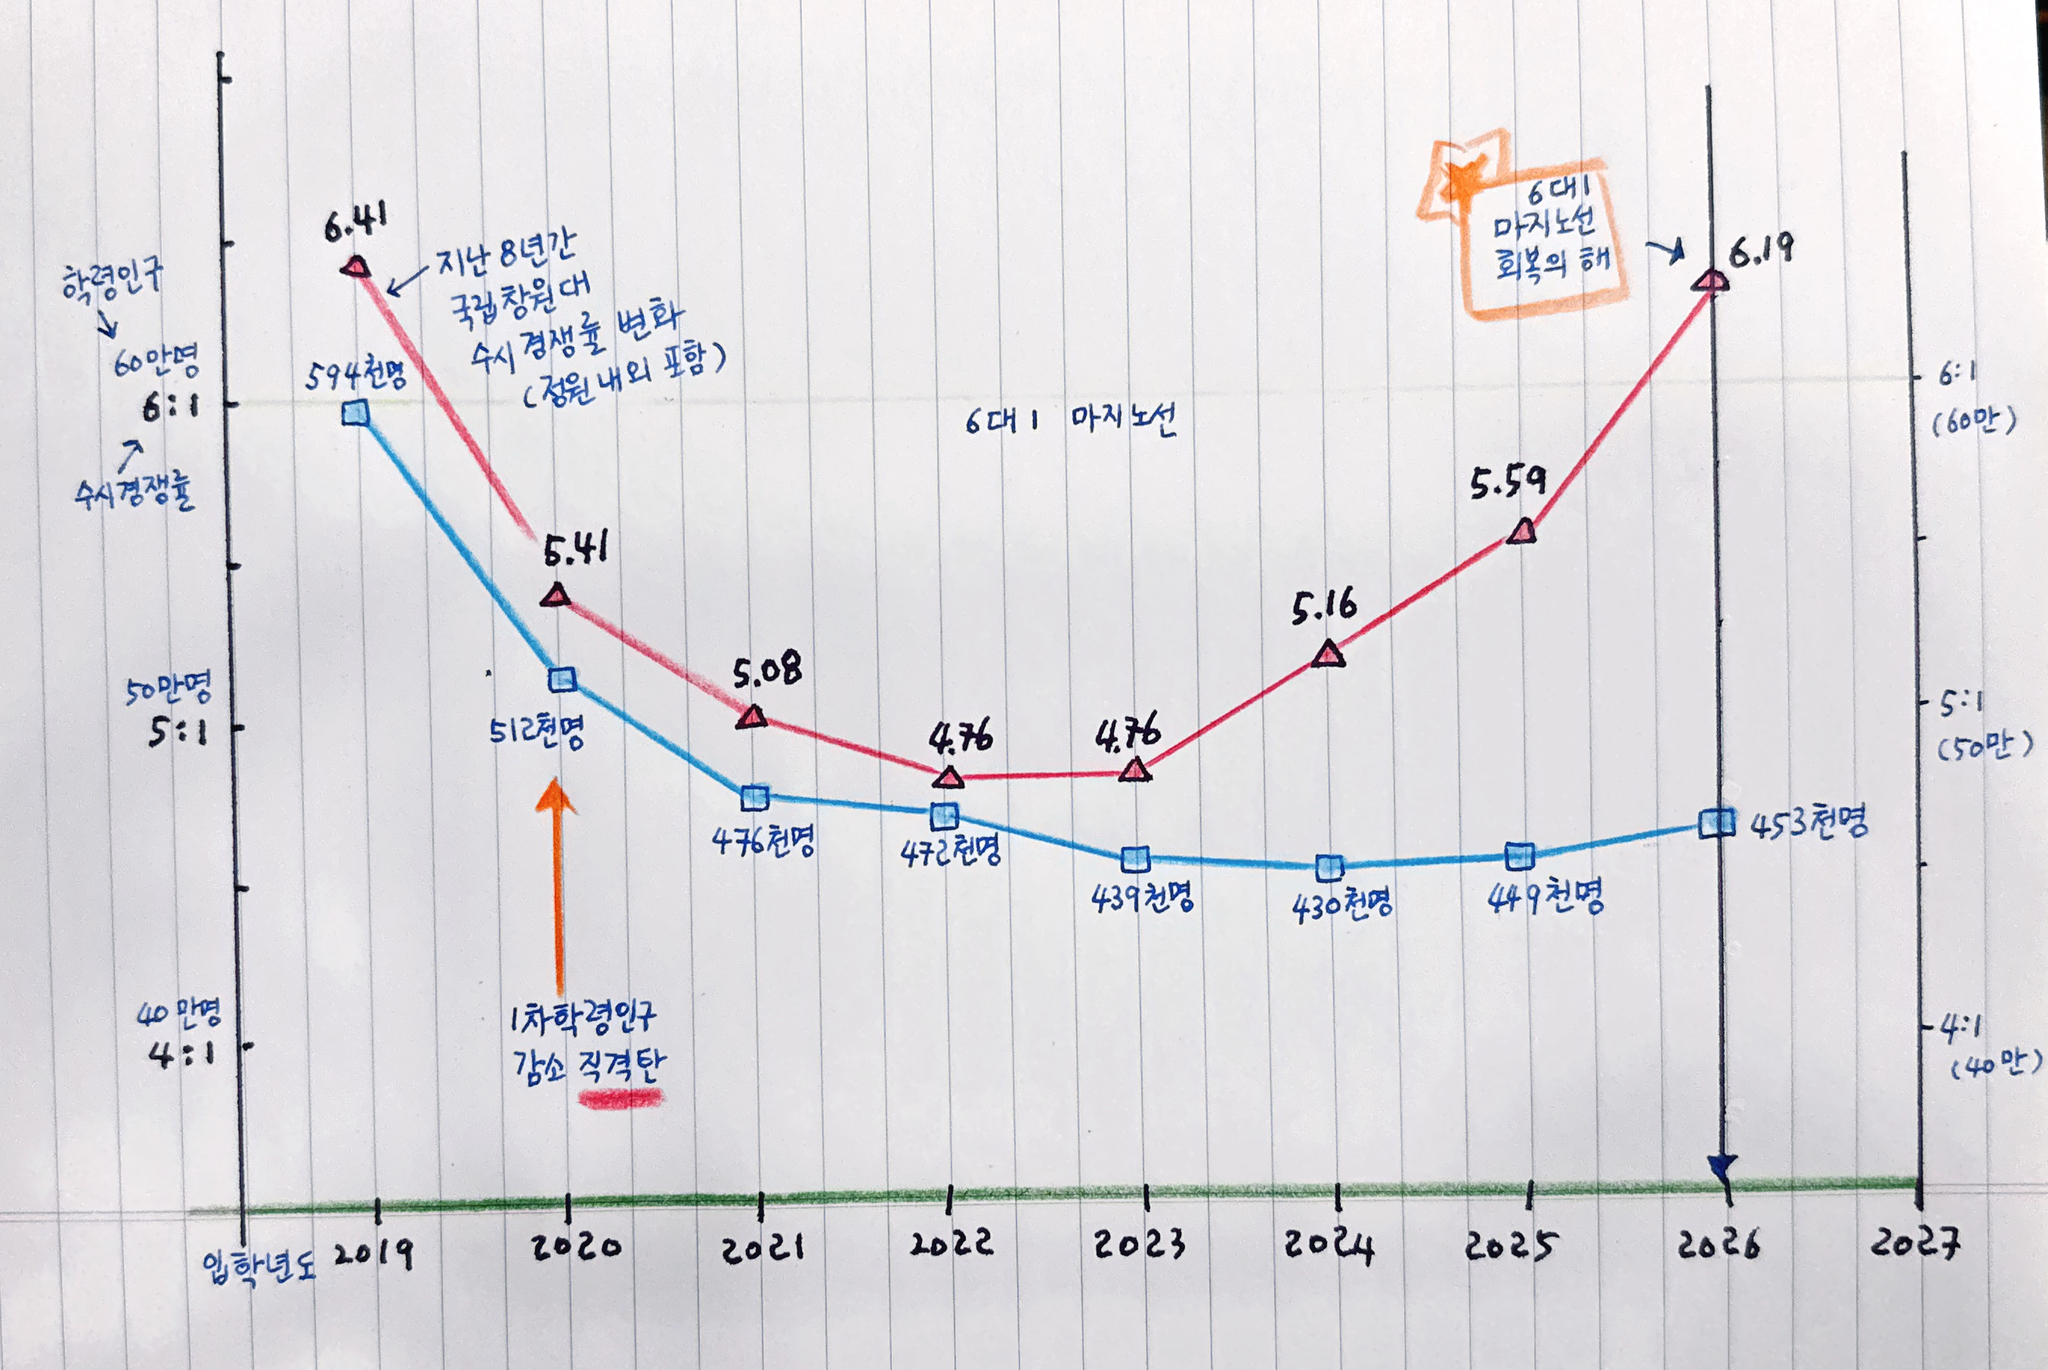 6.41
지난 8년간
국립창원대
수시 경쟁률 변화
(정원 내외 포함)
6대1
마지노선
회복의 해
6.19
학령인구
60만명
6:1
수시경쟁률
594천명
6대1 마지노선
6:1
(60만)
5.41
5.08
4.76
4.76
5.16
5.59
50만명
5:1
5:1
(50만)
512천명
476천명
472천명
439천명
430천명
449천명
453천명
1차학령인구
감소 직격탄
40만명
4:1
4:1
(40만)
입학년도 2019 2020 2021 2022 2023 2024 2025 2026 2027